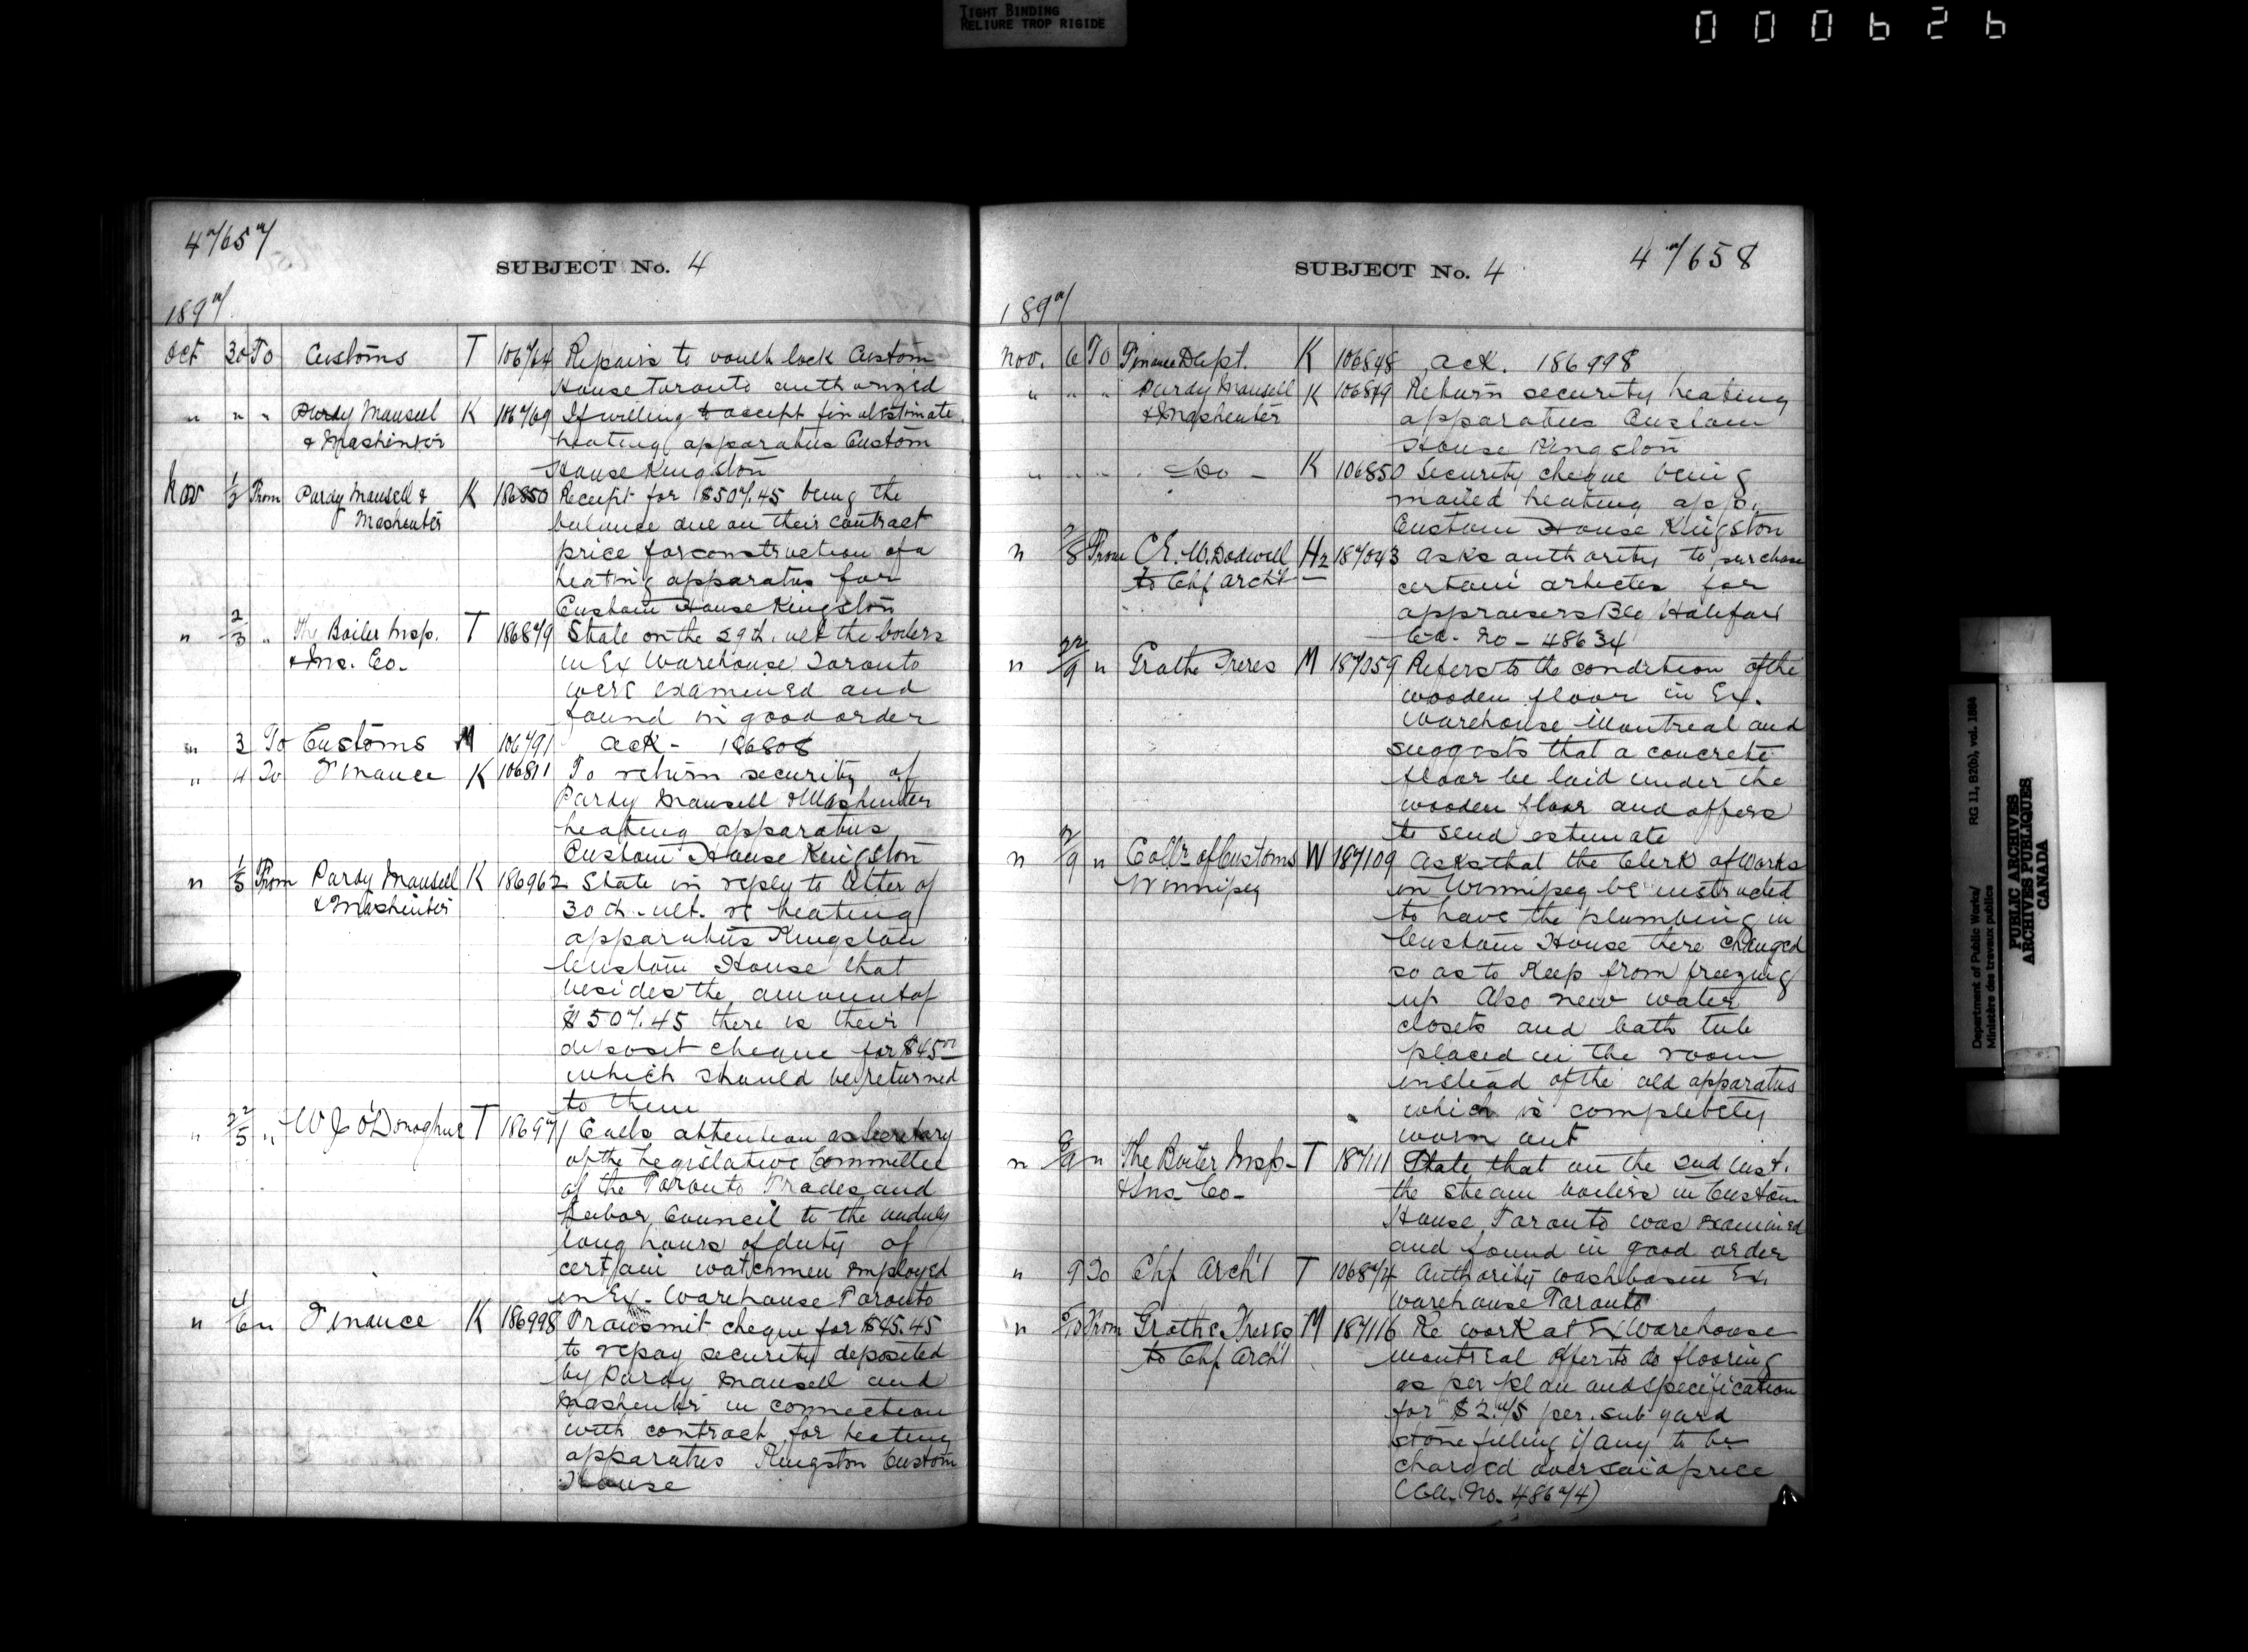 TIGHT BINDING
RELIURE TROP RIGIDE
000626
47/657
SUBJECT No. 4
1897
Oct 30 To Customs T 106764 Repairs to vault lock Custom
House Toronto authorized
" " " Purdy Mansell K 106769 If willing to accept final estimate
& Mashinter heating apparatus Custom
House Kingston
Nov 1/2 From Purdy Mansell & K 186850 Receipt for $507.45 being the
Mashenter balance due on their contract
price for construction of a
heating apparatus for
Custom House Kingston
" 2/3 " The Boiler Insp. T 186879 State on the 29th. ult the boilers
& Ins. Co. in Ex Warehouse Toronto
were examined and
found in good order
" 3 To Customs M 106791 ack - 186808
" 4 To Finance K 106811 To return security of
Purdy Mansell & Mashenter
heating apparatus
Custom House Kingston
" 1/5 From Purdy Mansell K 186962 State in reply to letter of
& Mashinter 30th. ult. re heating
apparatus Kingston
Custom House that
besides the amount of
$507.45 there is their
deposit cheque for $45.00
which should be returned
to them
" 22/5 " W J O'Donoghue T 186971 Calls attention as Secretary
of the Legislative Committee
of the Toronto Trades and
Labor Council to the unduly
long hours of duty of
certain watchmen employed
in Ex. Warehouse Toronto
" 4/6 " Finance K 186998 Transmit cheque for $45.45
to repay security deposited
by Purdy Mansell and
Mashenter in connection
with contract for heating
apparatus Kingston Custom
House
SUBJECT No. 4
47/658
1897
Nov. 6 To Finance Dept. K 106848 ack. 186998
" " " Purdy Mansell K 106849 Return security heating
& Mashenter apparatus Custom
House Kingston
" " " Do - K 106850 Security cheque being
mailed heating app.
Custom House Kingston
" 2/8 From C.E.W. Dodwell H2 187043 Asks authority to purchase
to Chf Archt - certain articles for
appraisers Bldg Halifax
Ca. No - 48634
" 22/9 " Grothe Freres M 187059 Refers to the condition of the
wooden floor in Ex.
Warehouse Montreal and
suggests that a concrete
floor be laid under the
wooden floor and offers
to send estimate
" 2/9 " Collr of Customs W 187109 Asks that the Clerk of Works
Winnipeg in Winnipeg be instructed
to have the plumbing in
Custom House there changed
so as to keep from freezing
up Also new water
closets and bath tub
placed in the room
instead of the old apparatus
which is completely
worn out
" 8/9 " The Boiler Insp - T 187111 State that on the 2nd inst.
& Ins. Co - the steam boilers in Custom
House Toronto was examined
and found in good order
" 9 To Chf Arch't T 106874 Authority wash basin Ex.
Warehouse Toronto
" From Grothe Freres M 187116 Re work at Ex Warehouse
to Chf Archt Montreal offer to do flooring
as per plan and specification
for $2.75 per. sub yard
stone filling if any to be
charged over said price
(Ca. No. 48674)
Department of Public Works/
Ministère des travaux publics
RG 11, B2(b), vol. 1984
PUBLIC ARCHIVES
ARCHIVES PUBLIQUES
CANADA